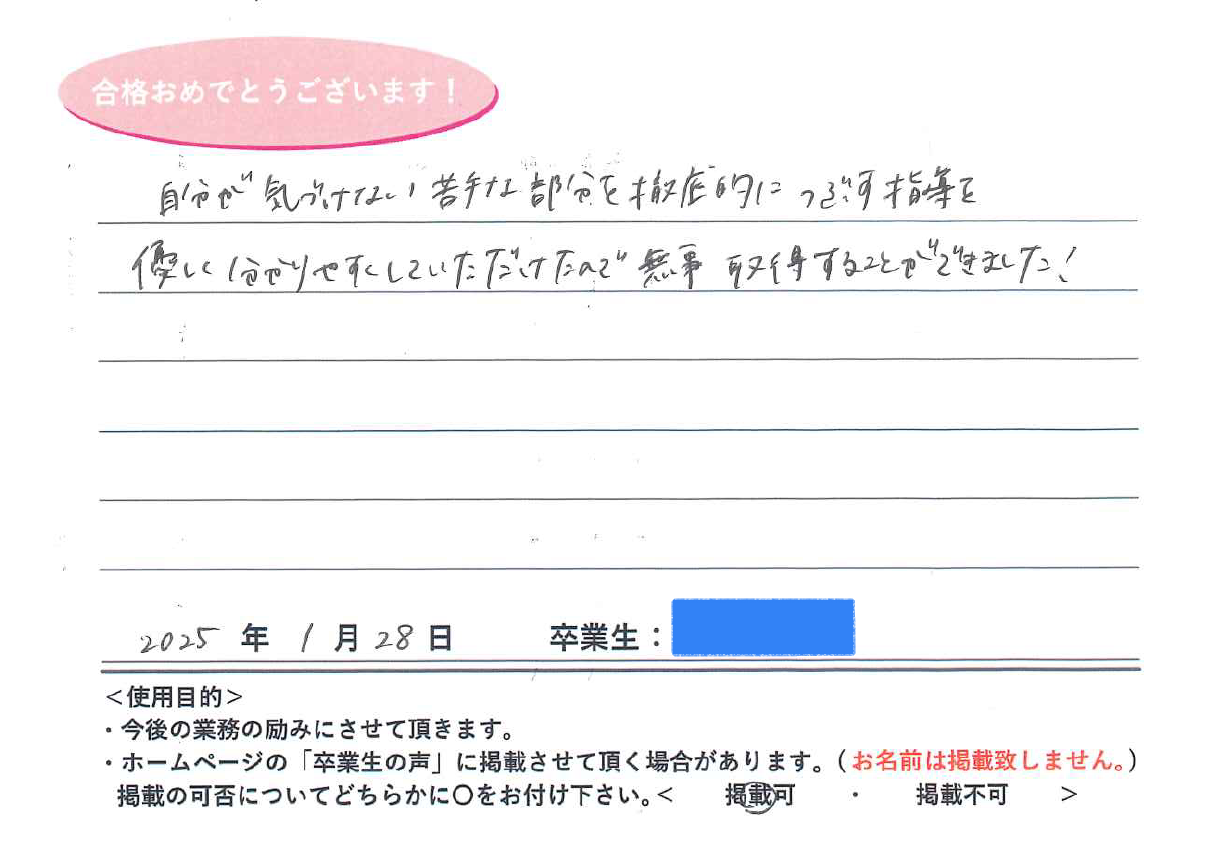 合格おめでとうございます！
自分が気づけない苦手な部分を徹底的につぶす指導を
優しく分かりやすくしていただけたので無事取得することができました！
2025 年 1 月 28 日 卒業生：
＜使用目的＞
・今後の業務の励みにさせて頂きます。
・ホームページの「卒業生の声」に掲載させて頂く場合があります。（お名前は掲載致しません。）
掲載の可否についてどちらかに〇をお付け下さい。＜ 掲載可 ・ 掲載不可 ＞